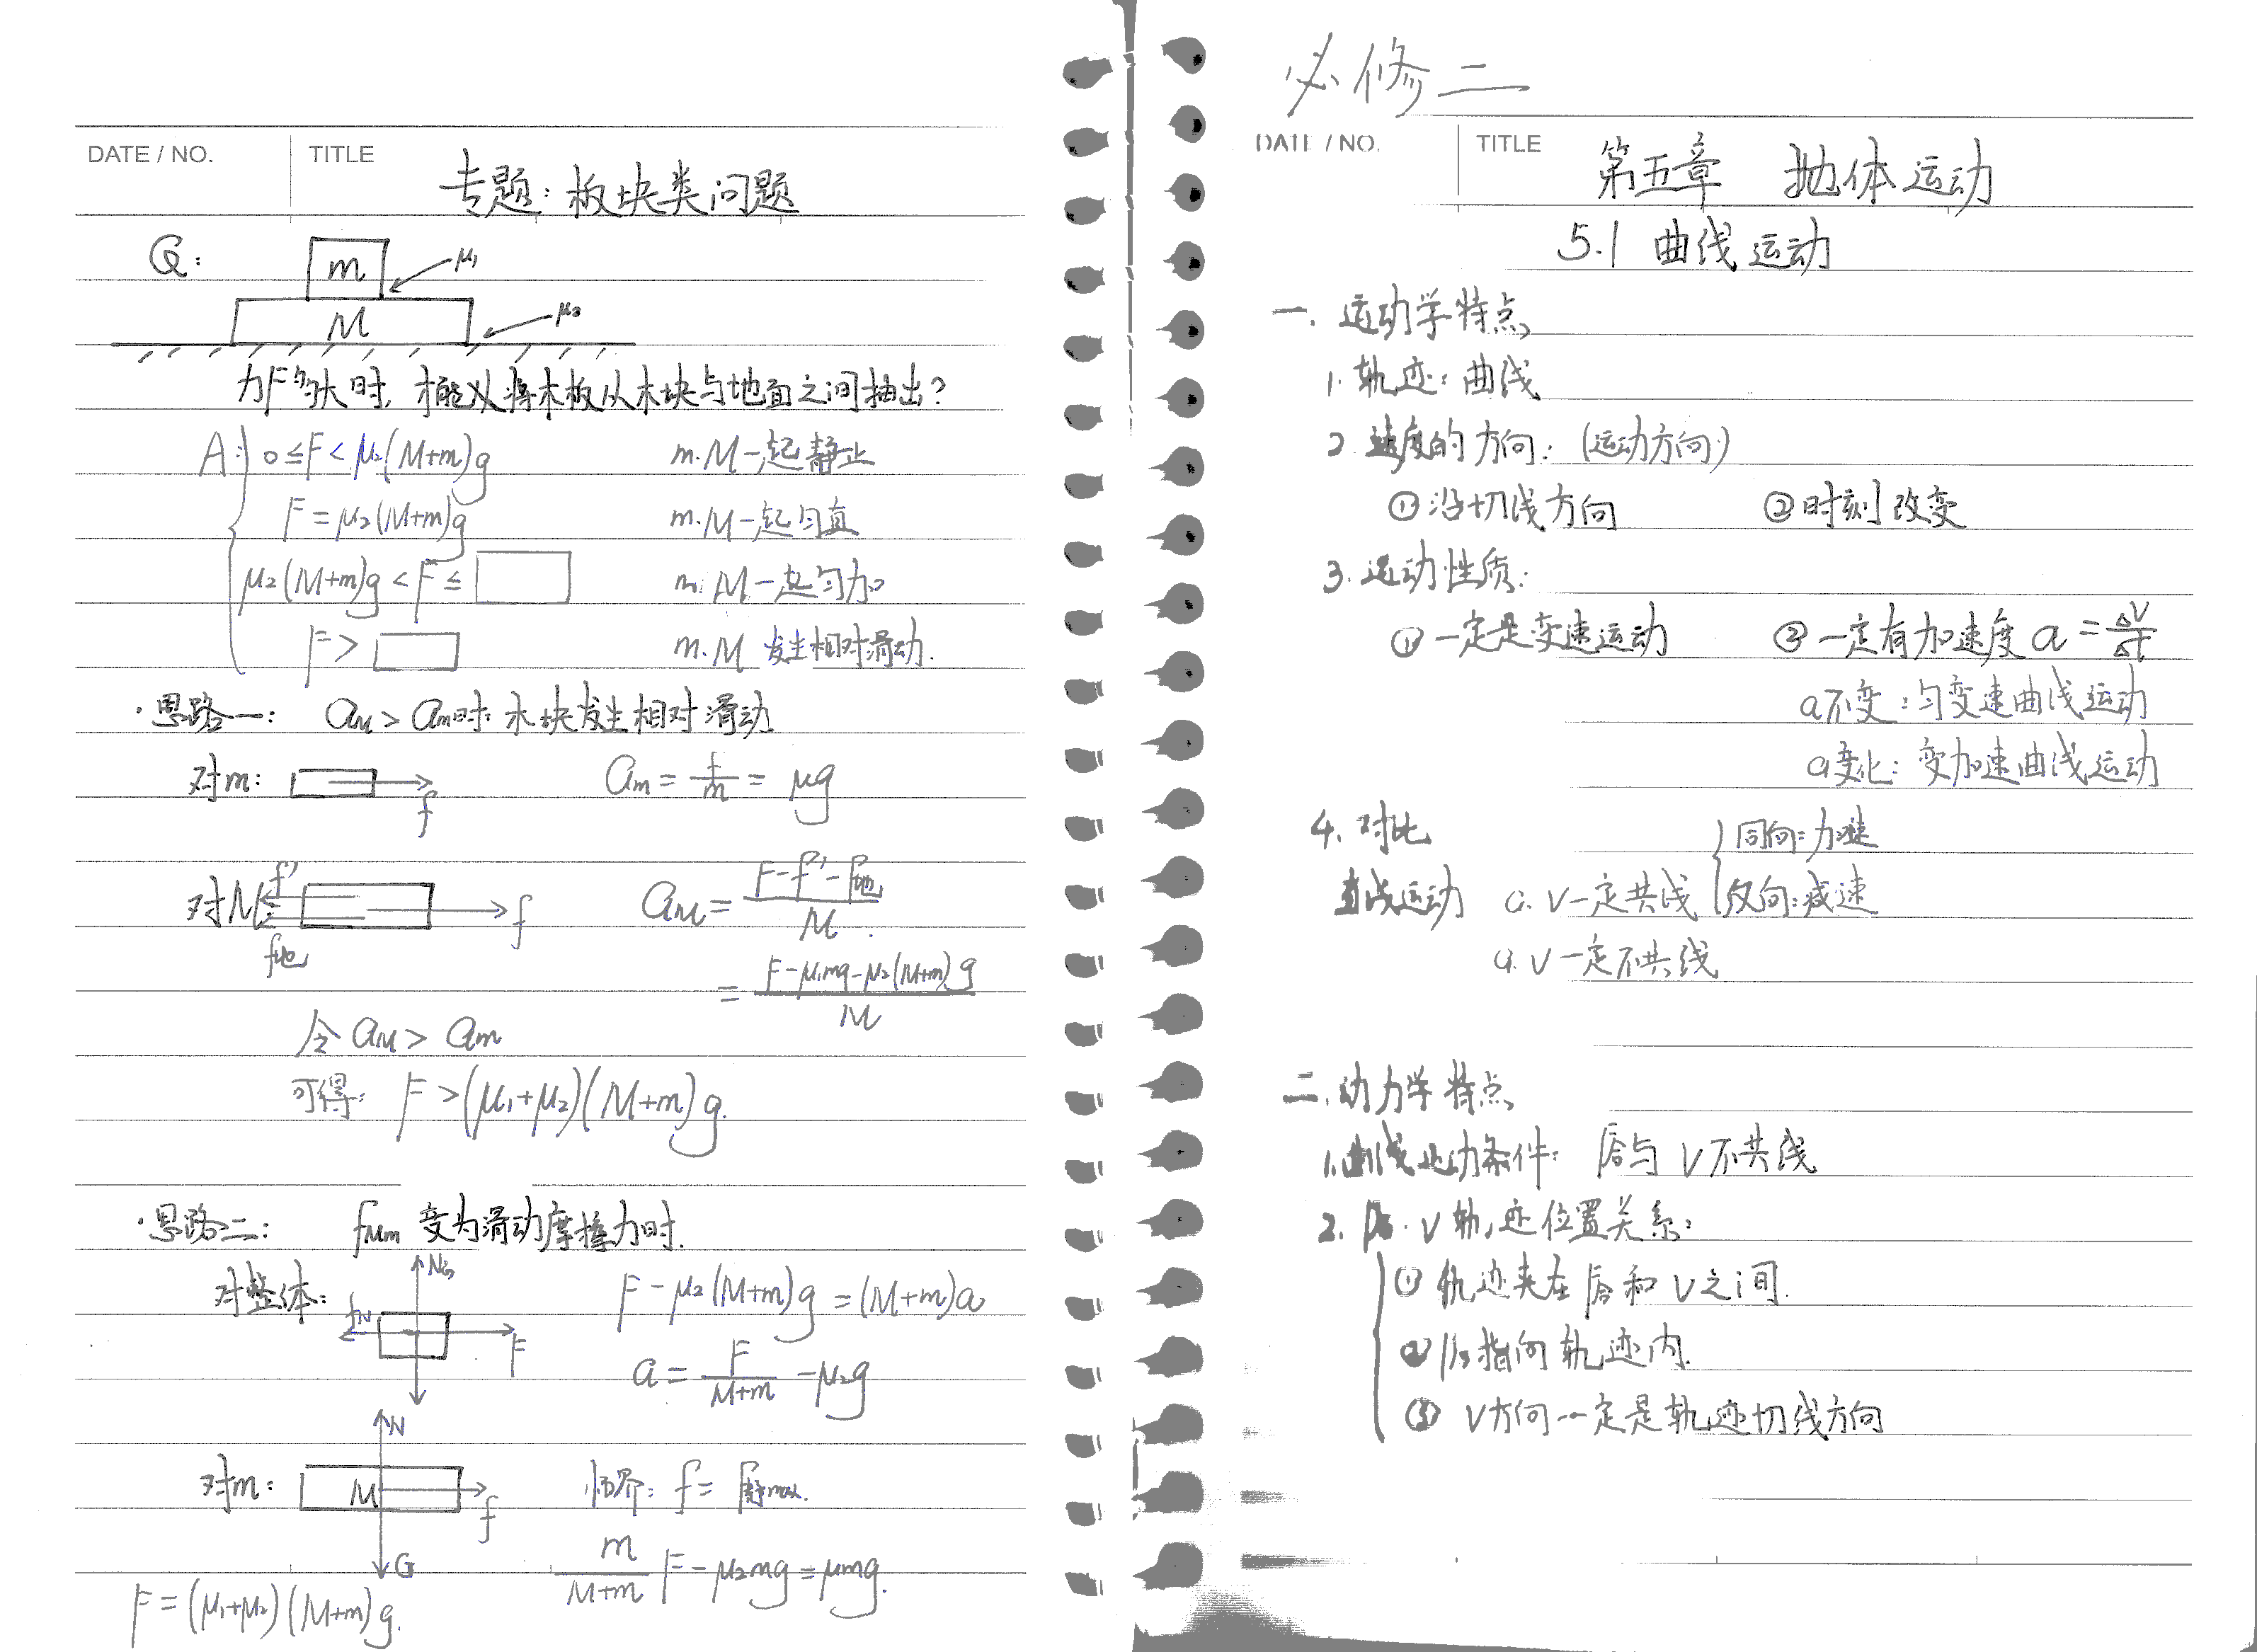 DATE / NO.
TITLE
专题：板块类问题
Q：
m
μ₁
M
μ₂
力F多大时，才能将木板从木块与地面之间抽出？
A： 0≤F<μ₂(M+m)g m.M一起静止
F=μ₂(M+m)g m.M一起匀直
μ₂(M+m)g<F≤ m.M一起匀加
F> m.M 发生相对滑动.
·思路一： aM>am时 木块发生相对滑动
对m： f am=f/m=μg
对M： f' f地 f aM=(F-f'-f地)/M
=(F-μ₁mg-μ₂(M+m)g)/M
令aM>am
可得： F>(μ₁+μ₂)(M+m)g.
·思路二： fMm 变为滑动摩擦力时.
对整体： F F-μ₂(M+m)g=(M+m)a
a=F/(M+m)-μ₂g
对m： N M f G 临界：f=f静max.
m/(M+m) F-μ₂mg=μmg.
F=(μ₁+μ₂)(M+m)g.
必修二
DATE / NO.
TITLE
第五章 抛体运动
5.1 曲线运动
一. 运动学特点
1. 轨迹：曲线
2. 速度的方向：(运动方向)
①沿切线方向 ②时刻改变
3. 运动性质：
①一定是变速运动 ②一定有加速度 a=Δv/Δt
a不变：匀变速曲线运动
a变化：变加速曲线运动
4. 对比
直线运动 a.v一定共线 同向：加速
反向：减速
a.v一定不共线
二.动力学特点
1.曲线运动条件：F合与v不共线
2. F合.v轨迹位置关系：
① 轨迹夹在F合和v之间.
② F合指向轨迹内.
③ v方向一定是轨迹切线方向